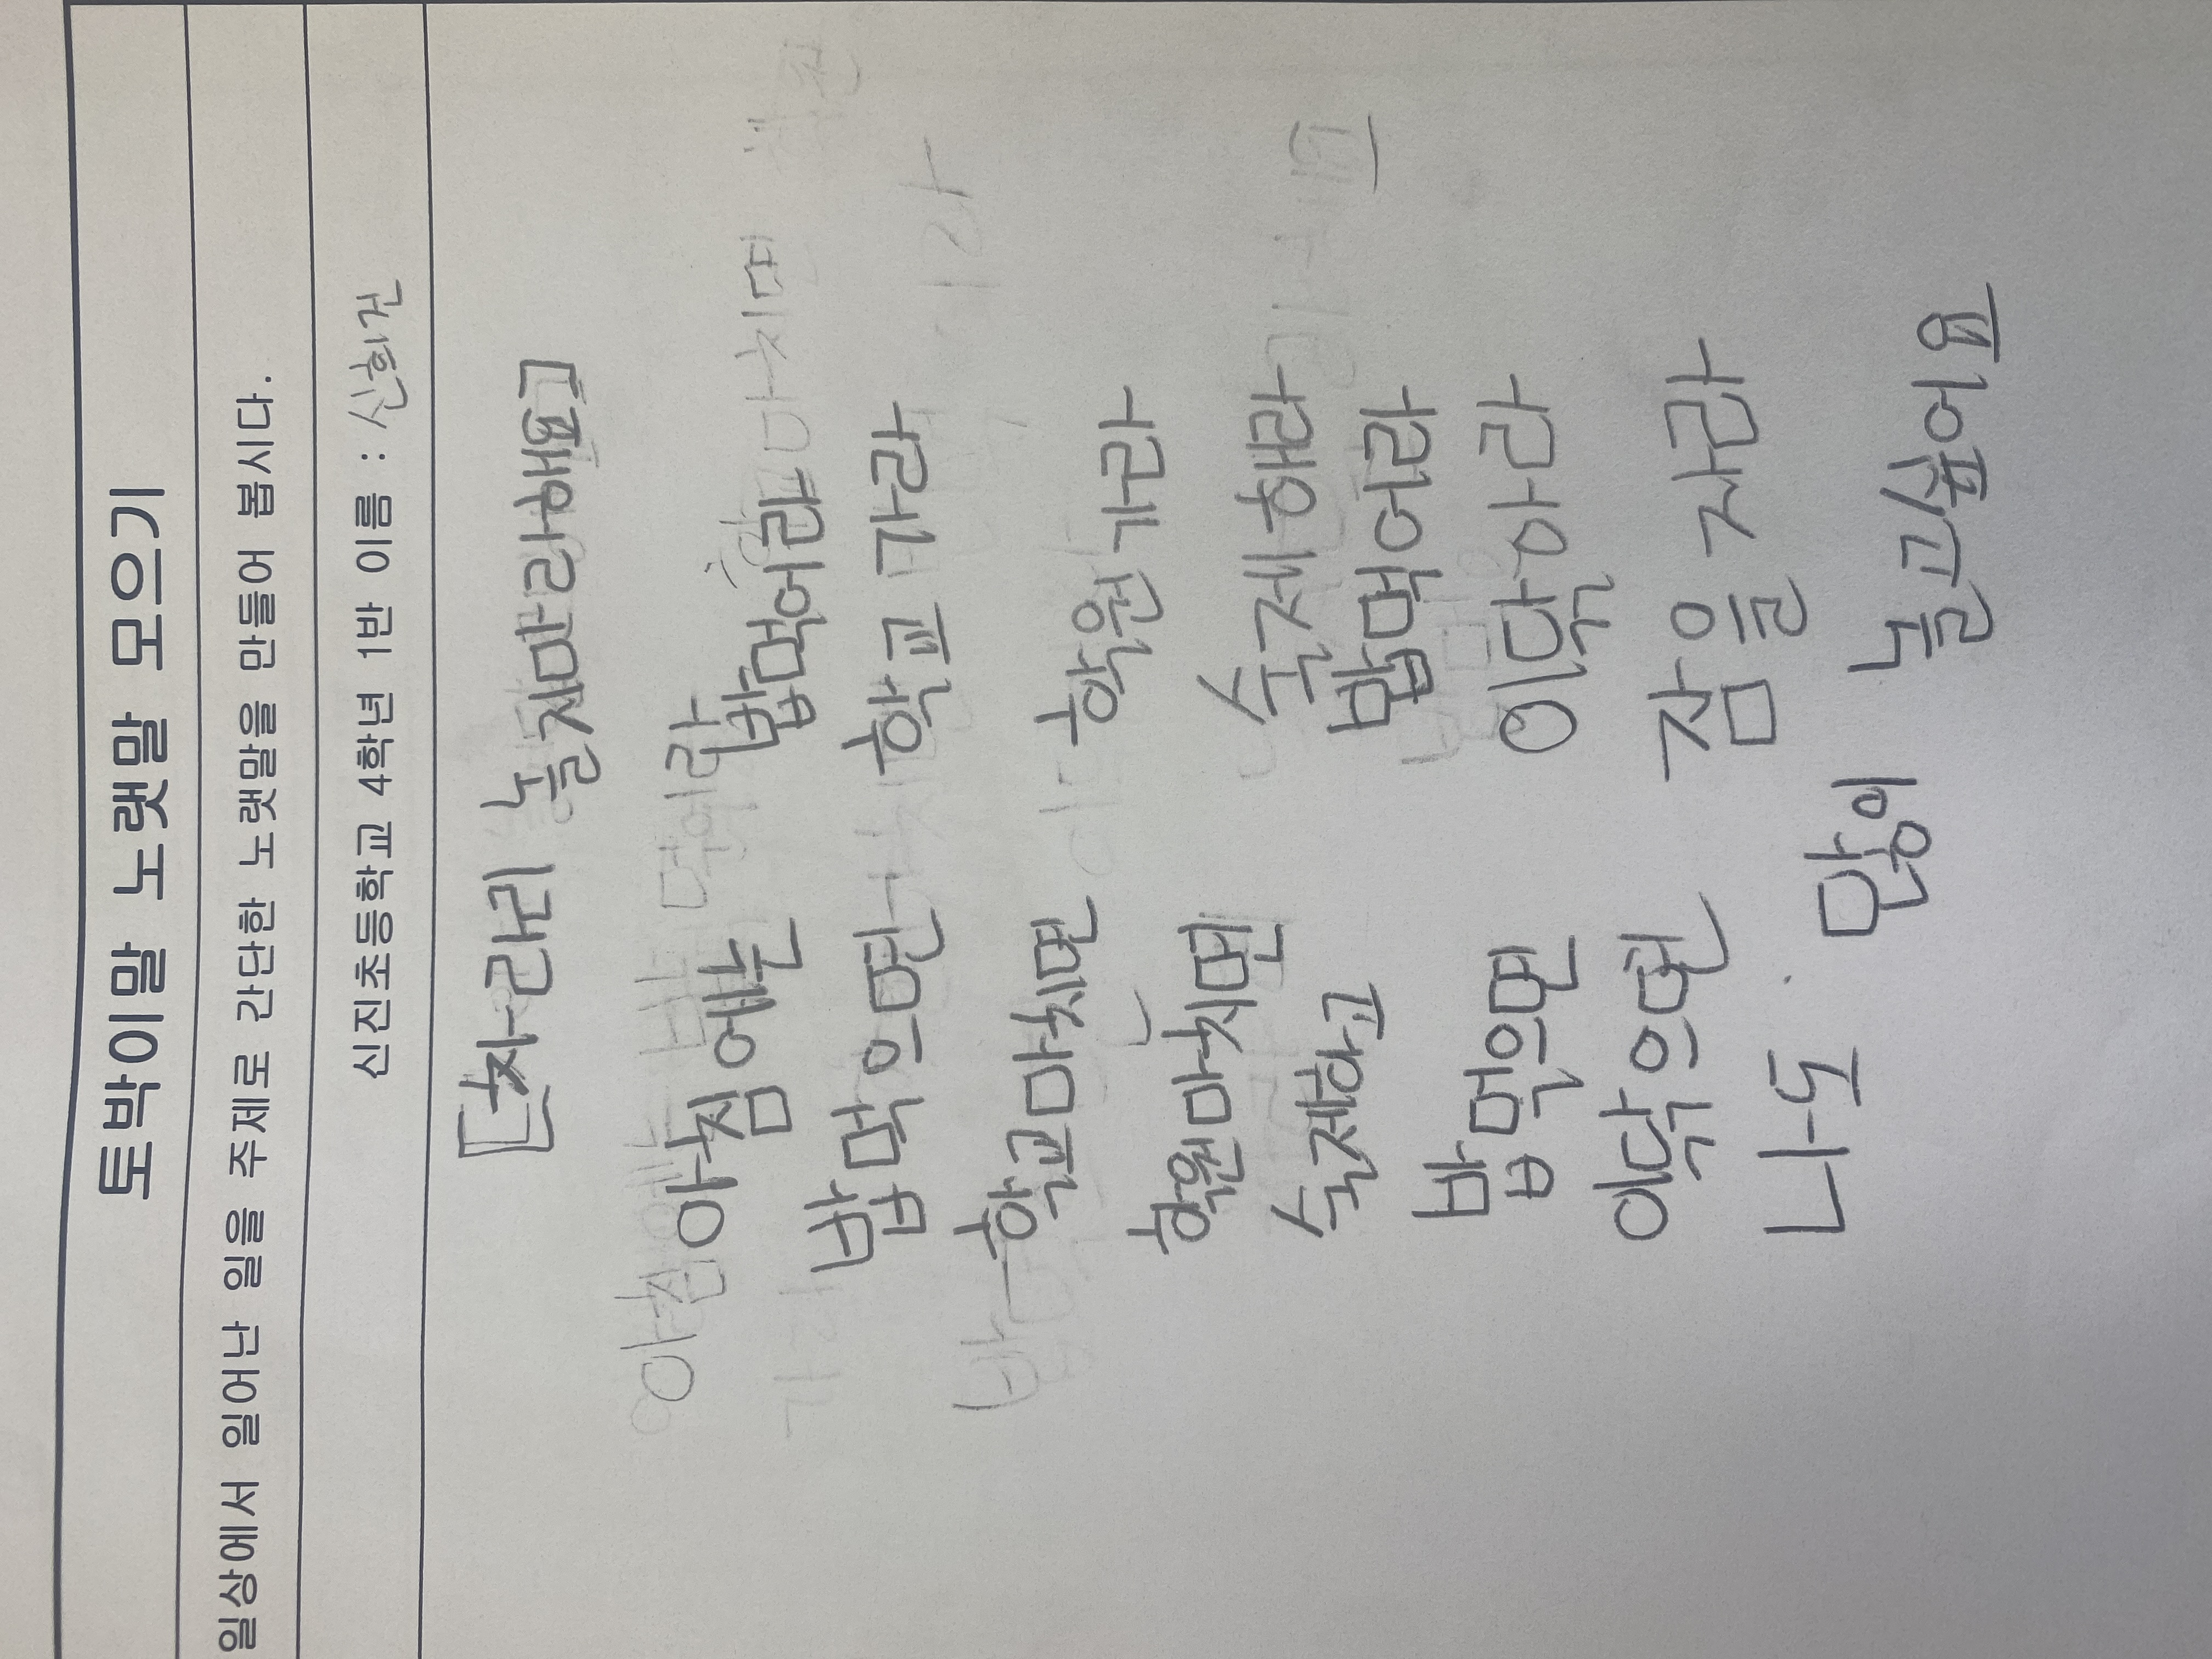 토박이말 노랫말 모으기
일상에서 일어난 일을 주제로 간단한 노랫말을 만들어 봅시다.
신진초등학교 4학년 1반 이름 : 신희건
[차라리 놀지마라해요]
아침에는 밥먹어라
밥먹으면 학교 가라
학교마치면 학원 가라
학원마치면 숙제해라
숙제하고 밥먹어라
밥먹으면 이닦아라
이닦으면 잠을 자라
나도 많이 놀고싶어요